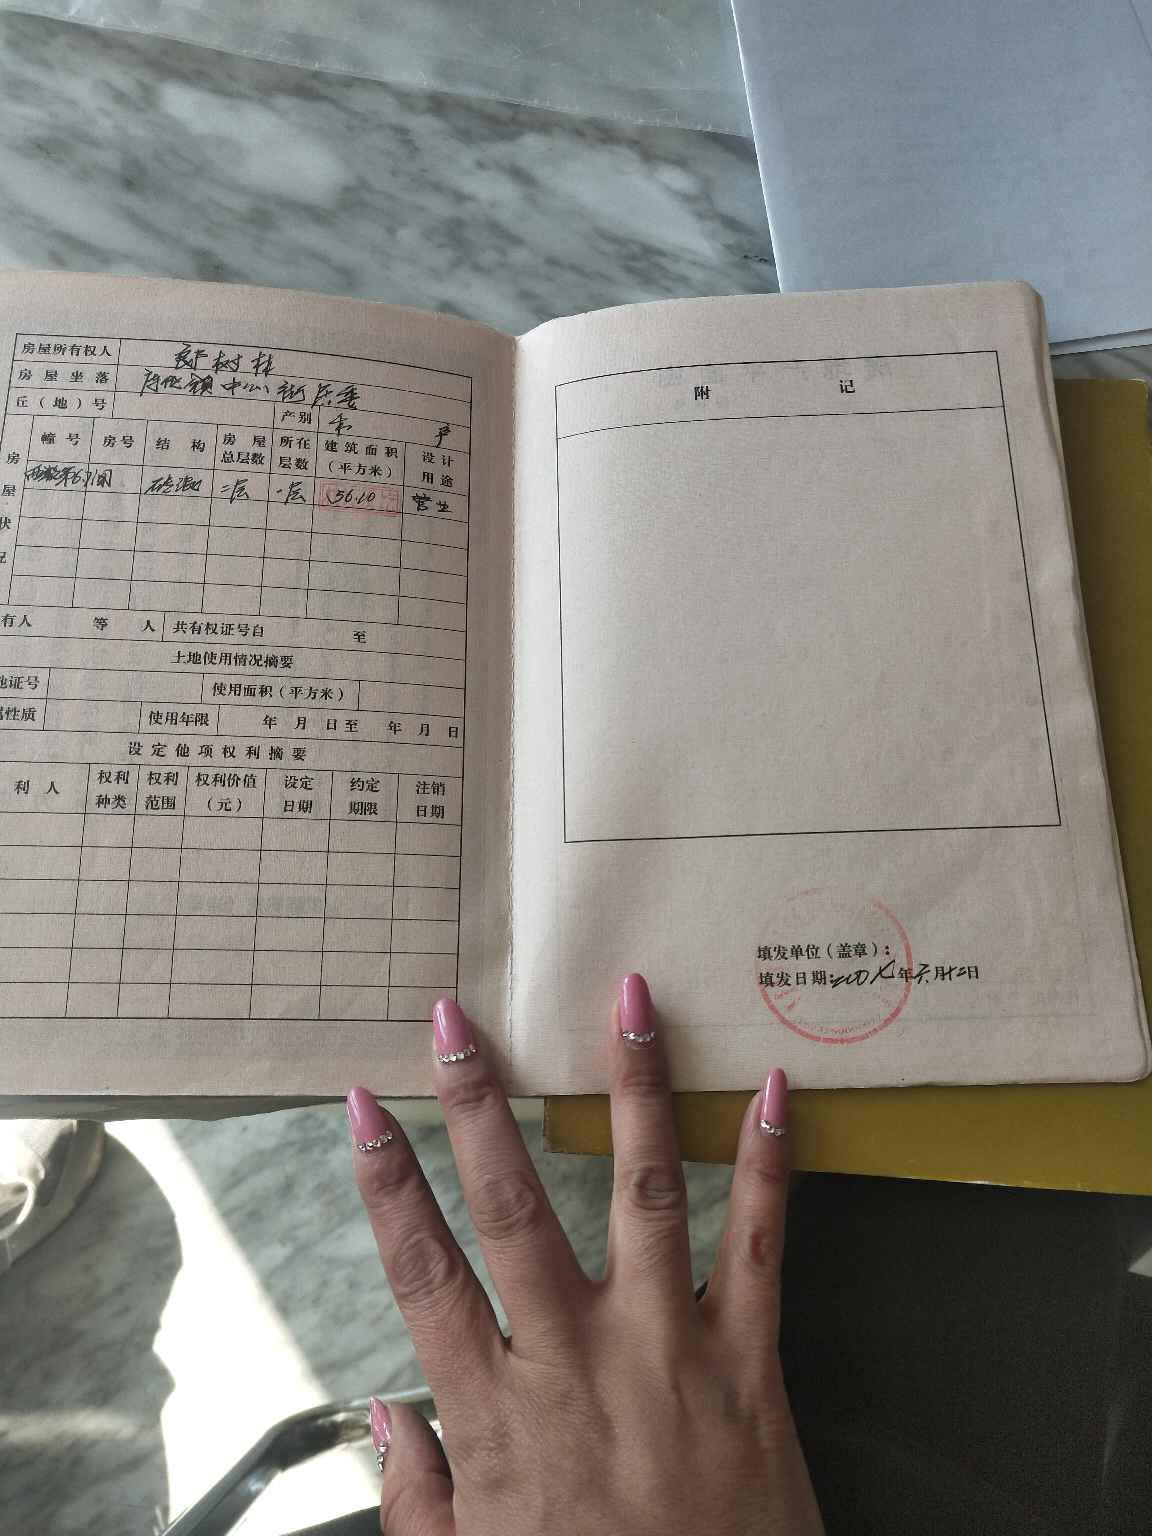 房屋所有权人 树林
房屋坐落 镇中心街居委
丘（地）号 产别 私 产
房屋状况
幢号 房号 结构 房屋总层数 所在层数 建筑面积（平方米） 设计用途
砖混 二层 一层 56.10 营业
有人 等 人 共有权证号自 至
土地使用情况摘要
地证号 使用面积（平方米）
属性质 使用年限 年 月 日至 年 月 日
设定他项权利摘要
利人 权利种类 权利范围 权利价值（元） 设定日期 约定期限 注销日期
附 记
填发单位（盖章）：
填发日期：二00七年六月十二日